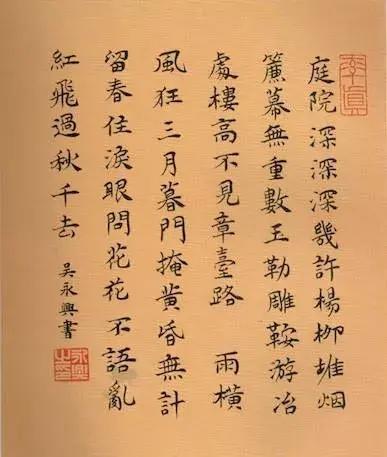 庭院深深深幾許楊柳堆烟
簾幕無重數玉勒雕鞍游冶
處樓高不見章臺路 雨橫
風狂三月暮門掩黄昏無計
留春住淚眼問花花不語亂
紅飛過秋千去
吴永興書
永興之印